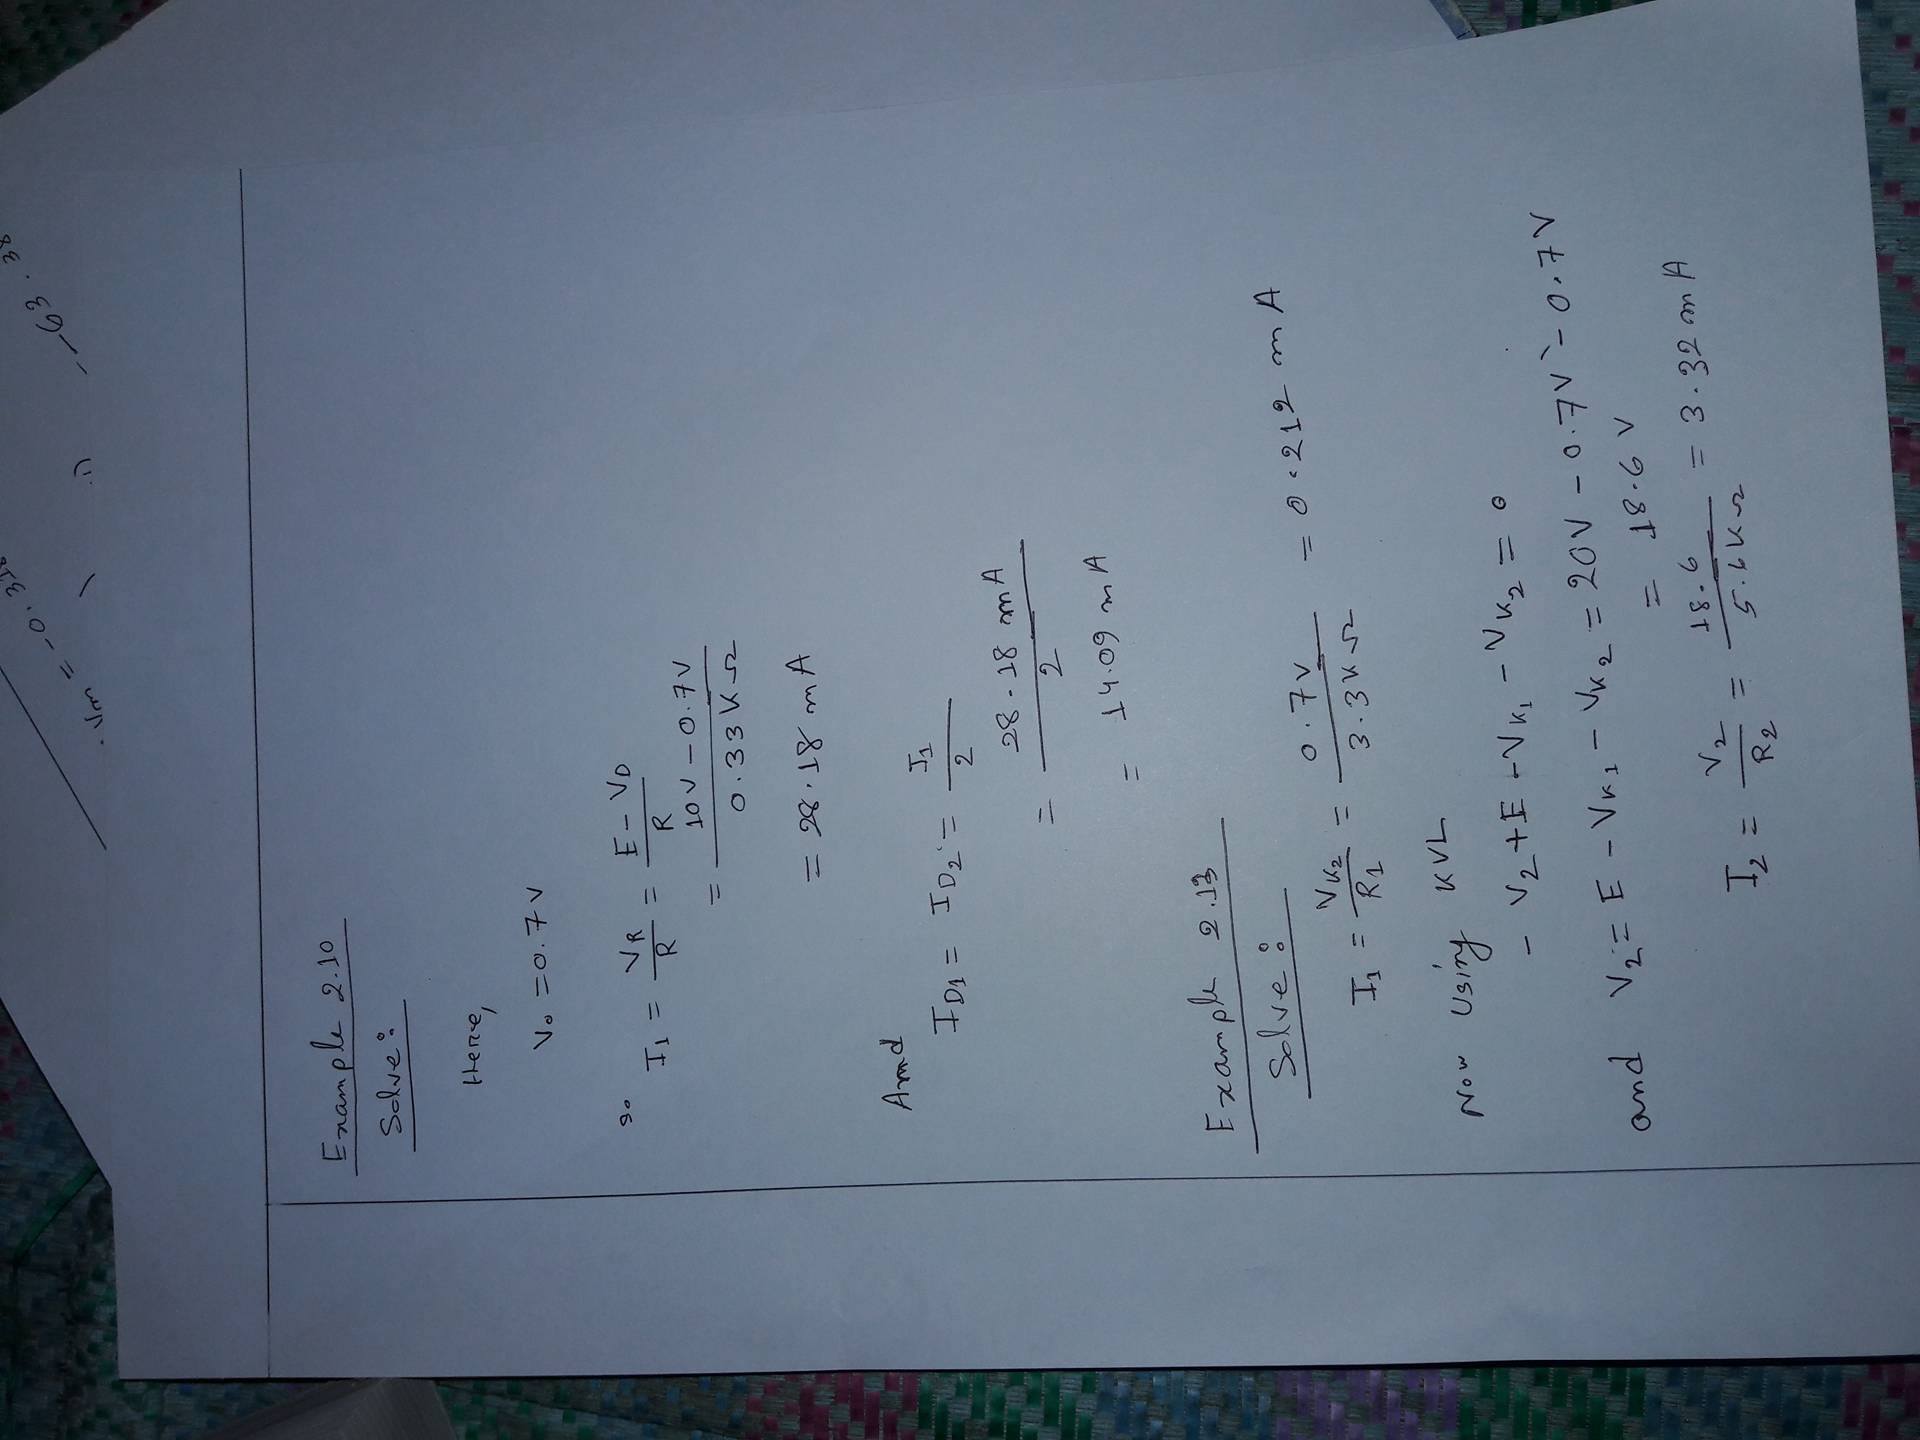 Vm = -0.318
--63.38
Example 2.10
Solve:
Here,
Vo = 0.7 V
So I1 = VR / R = E - VD / R
= 10 V - 0.7 V / 0.33 KΩ
= 28.18 mA
And
ID1 = ID2 = I1 / 2
= 28.18 mA / 2
= 14.09 mA
Example 2.13
Solve:
I1 = VK2 / R1 = 0.7 V / 3.3 KΩ = 0.212 mA
Now Using KVL
- V2 + E - VK1 - VK2 = 0
and V2 = E - VK1 - VK2 = 20V - 0.7 V - 0.7 V
= 18.6 V
I2 = V2 / R2 = 18.6 / 5.6 KΩ = 3.32 mA